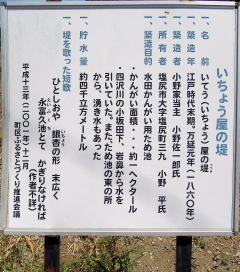 いちょう屋の堤
一、名 前 いてう(いちょう)屋の堤
一、築造年 江戸時代末期、万延元年(一八六〇年)
一、築造者 小野家当主 小野佐一郎氏
一、所有者 塩尻市大字塩尻町三九 小野 平氏
一、築造目的 水田かんがい用ため池
・かんがい面積・・・約一ヘクタール
・四沢川の小坂田下、岩鼻から水を
引いていた。また、ため池の東の所
から、湧き水もあった
一、貯水量 約四千立方メートル
一、堤を歌った短歌
ひとしおや 銀杏の形 末広く
永富久池とて かぎりなければ
(作者不詳)
平成十三年(二〇〇一年)十二月
町区ふるさとづくり推進会議